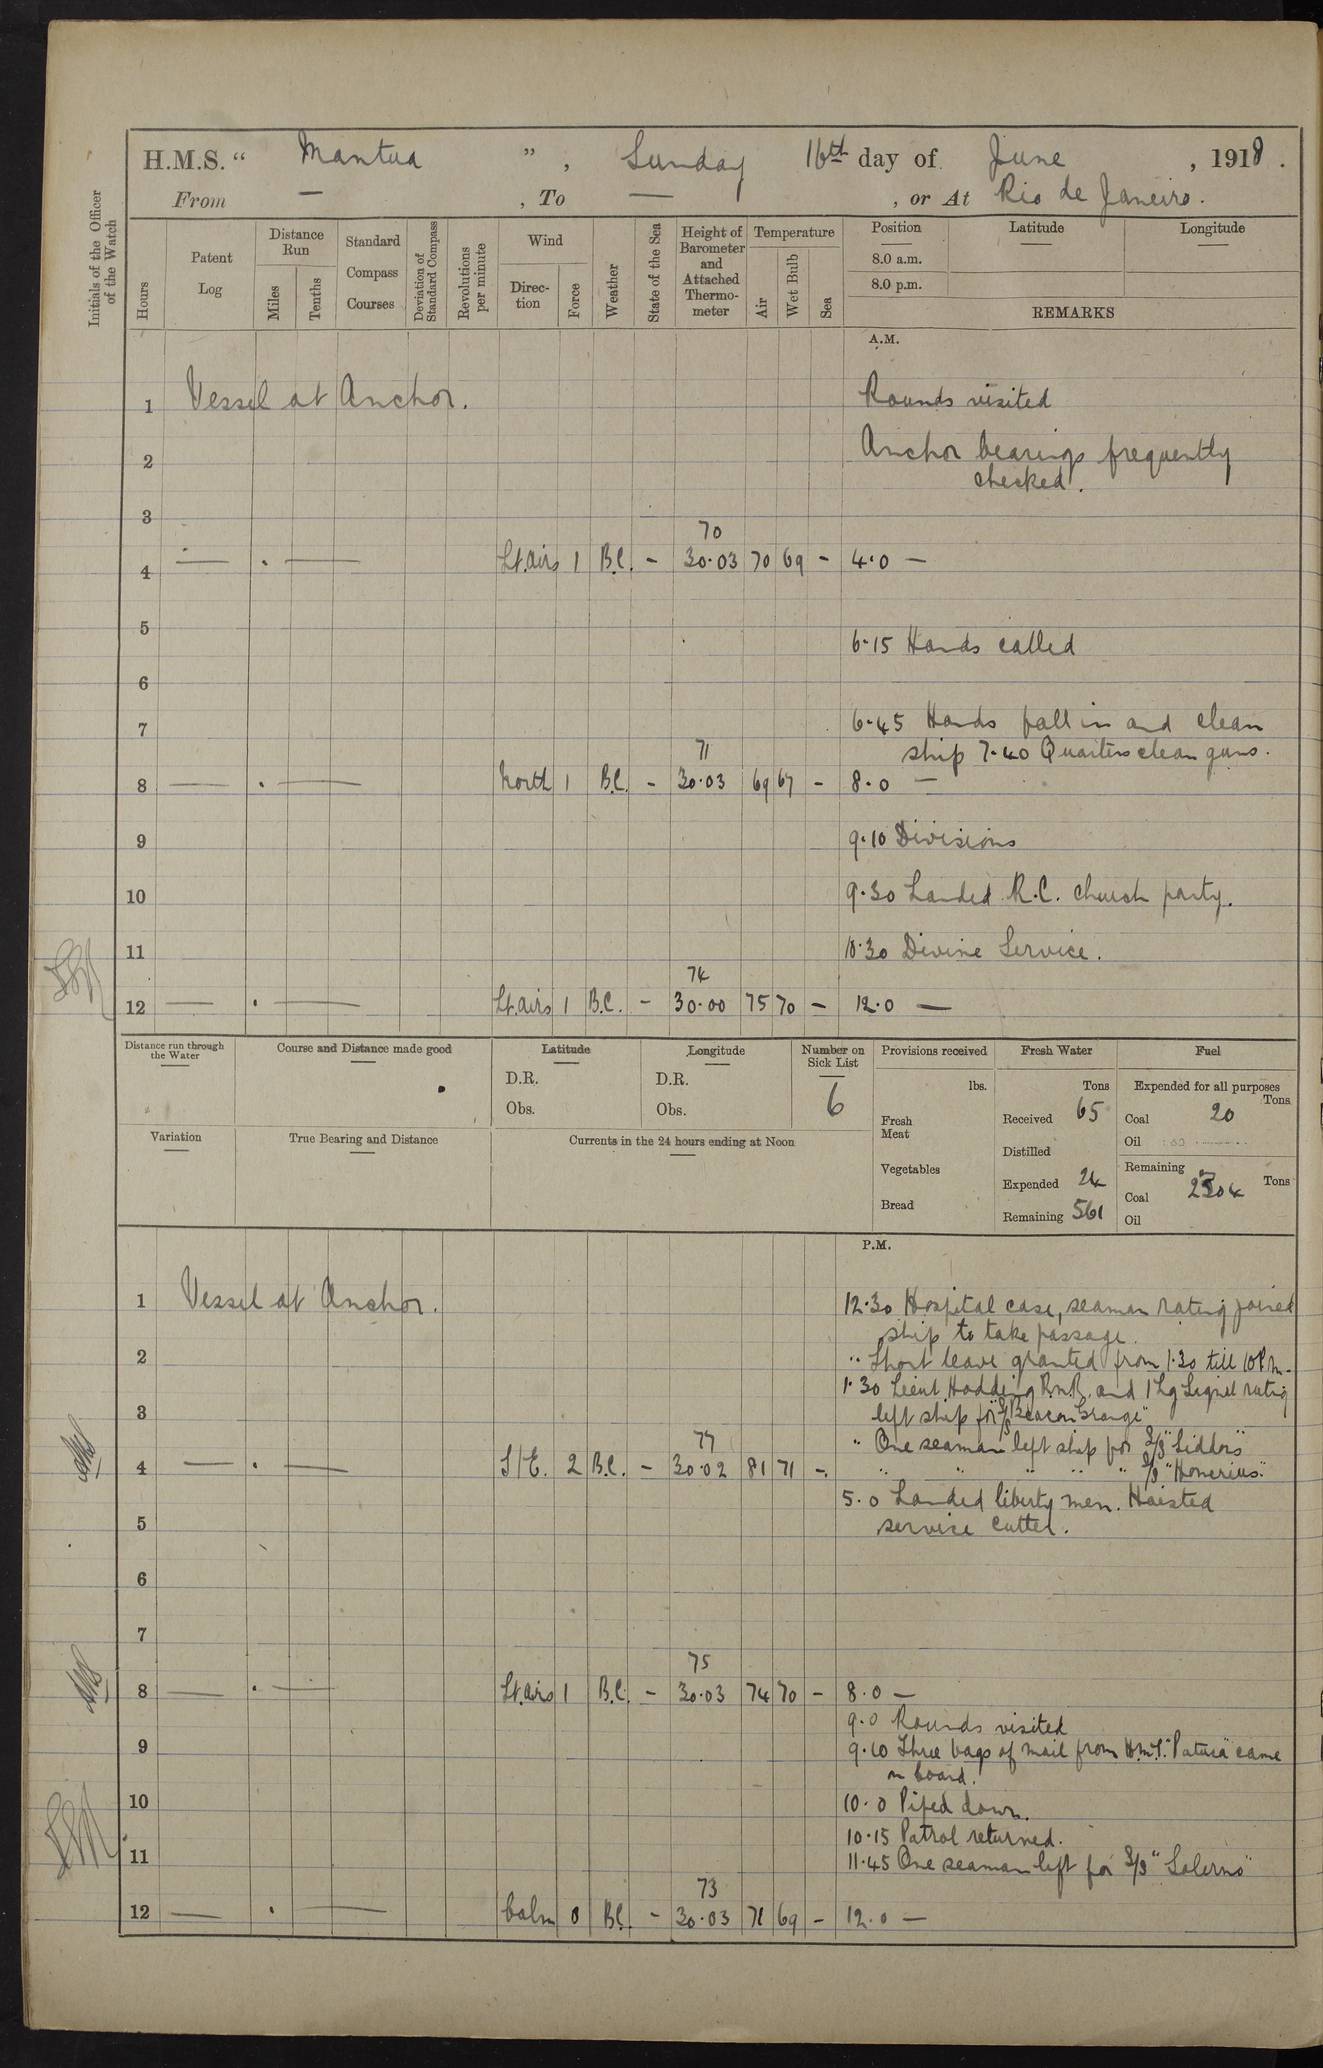 H.M.S. " Mantua " , Sunday 16th day of June , 1918 .
From — , To — , or At Rio de Janeiro .
Initials of the Officer of the Watch
Hours
Patent Log
Distance Run
Miles
Tenths
Standard Compass Courses
Deviation of Standard Compass
Revolutions per minute
Wind
Direc-tion
Force
Weather
State of the Sea
Height of Barometer and Attached Thermo-meter
Temperature
Air
Wet Bulb
Sea
Position
Latitude
Longitude
8.0 a.m.
8.0 p.m.
REMARKS
A.M.
1 Vessel at Anchor. Rounds visited
2 Anchor bearings frequently
checked.
3
70
4 — . — Lt. airs 1 B.C. - 30.03 70 69 - 4.0 —
5
6.15 Hands called
6
7 6.45 Hands fall in and clean
71 ship 7.40 Quarters clean guns.
8 — . — North 1 B.C. - 30.03 69 67 - 8.0 —
9 9.10 Divisions
10 9.30 Landed R.C. church party.
11 10.30 Divine Service.
74
12 — . — Lt. airs 1 B.C. - 30.00 75 70 - 12.0 —
Distance run through the Water
Course and Distance made good
Latitude
D.R.
Obs.
Longitude
D.R.
Obs.
Number on Sick List
6
Variation
True Bearing and Distance
Currents in the 24 hours ending at Noon
Provisions received
lbs.
Fresh Meat
Vegetables
Bread
Fresh Water
Tons
Received 65
Distilled
Expended 24
Remaining 561
Fuel
Expended for all purposes
Tons
Coal 20
Oil
Remaining
Tons
Coal
Oil
P.M.
1 Vessel at Anchor. 12.30 Hospital case, seaman rating joined
ship to take passage.
2 " Short leave granted from 1.30 till 10 P.m.
1.30 Lieut Hodding R.N.R. and 1 Lg Signal rating
3 left ship for S/S "Beacon Grange"
77 " One seaman left ship for S/S
4 — . — S/E. 2 B.C. - 30.02 81 71 - " " " " " S/S "Honerius"
5.0 Landed liberty men. Hoisted
5 service cutter.
6
7
75
8 — . — Lt. airs 1 B.C. - 30.03 74 70 - 8.0 —
9.0 Rounds visited
9 9.10 Three bags of mail from H.M.S. "Patuca" came
on board.
10 10.0 Piped down.
10.15 Patrol returned.
11 11.45 One seaman left for S/S "Salerno"
73
12 — . — Calm 0 B.C. - 30.03 71 69 - 12.0 —